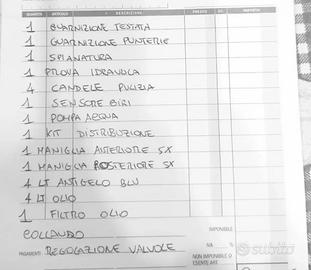 QUANTITÀ ARTICOLO DESCRIZIONE PREZZO IMPORTO
1 GUARNIZIONE TESTATA
1 GUARNIZIONE PUNTERIE
1 SPIANATURA
1 PROVA IDRAULA
4 CANDELE PULIZIA
1 SENSORE GIRI
1 POMPA ACQUA
1 KIT DISTRIBUZIONE
1 MANIGLIA ANTERIORE SX
1 MANIGLIA POSTERIORE SX
4 LT ANTIGELO BLU
4 LT OLIO
1 FILTRO OLIO
COLLAUDO
REGOLAZIONE VALVOLE
IMPONIBILE
IVA %
PAGAMENTI
NON IMPONIBILE O
ESENTE ART.
subito